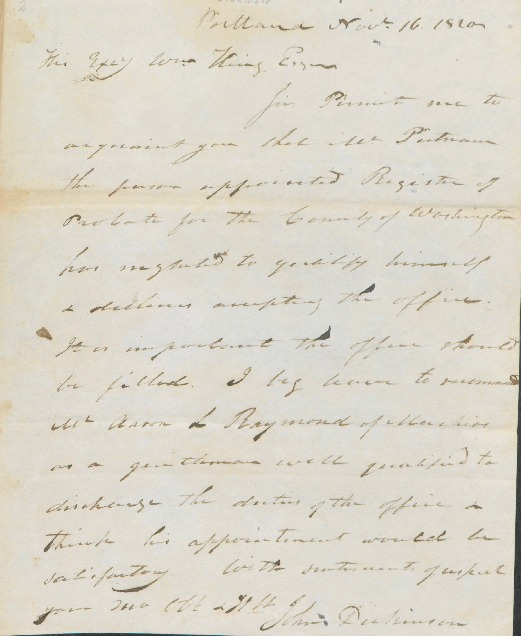 Portland Novr. 16. 1820
His Excy Wm King Esqr
Sir Permit me to
acquaint you that Mr Putnam
the person appointed Register of
Probate for the County of Washington
has neglectd to qualify himself
& declines accepting the office.
It is important the office should
be filled. I beg leave to recommend
Mr Aaron L Raymond of Machias
as a gentleman well qualified to
discharge the duties of the office &
think his appointment would be
satisfactory With sentiments of respect
your mo Obt & H St John Dickinson